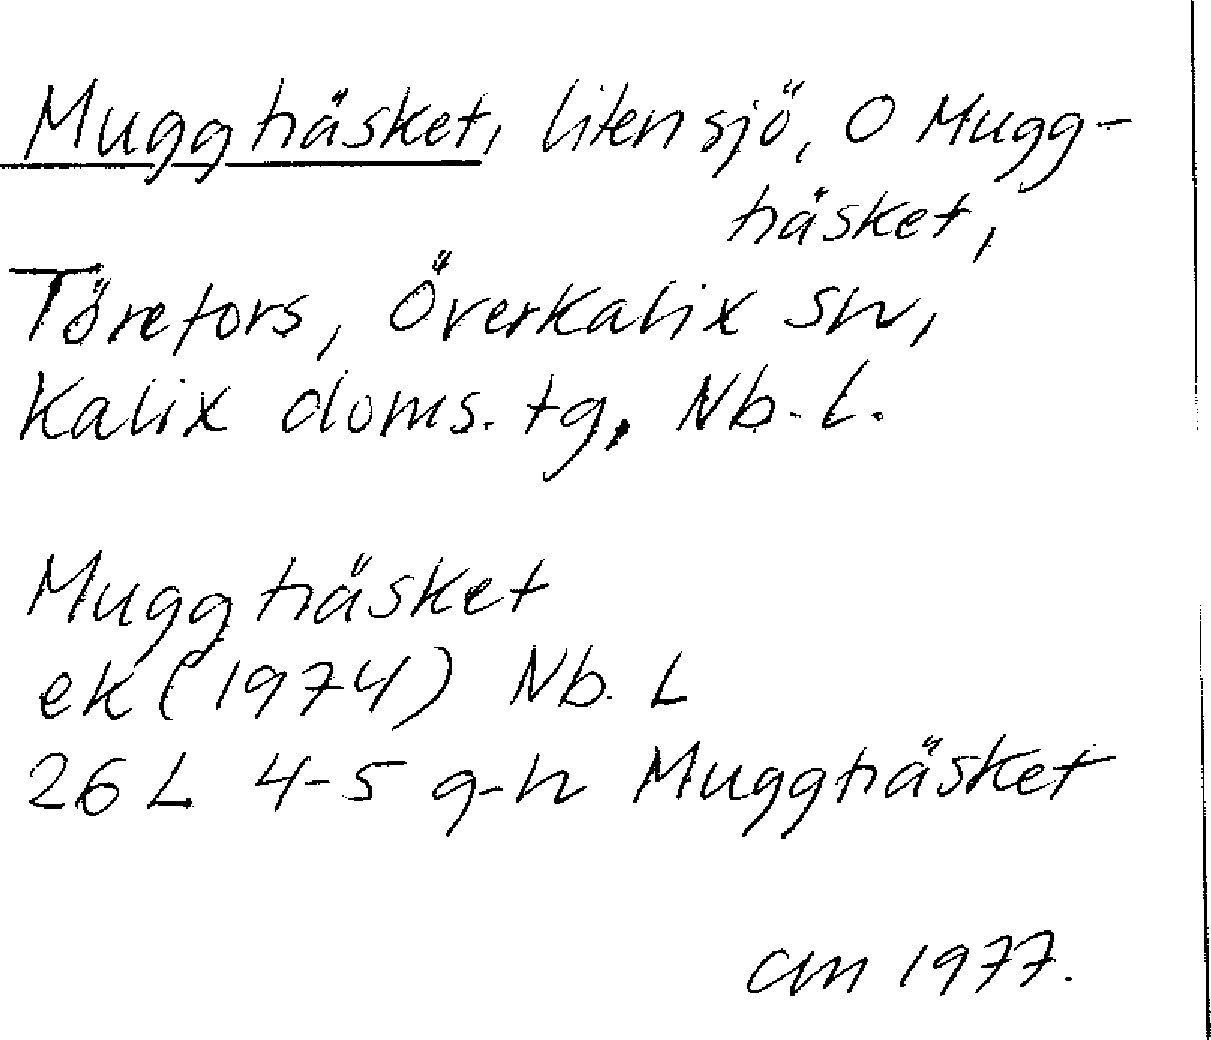 Muggträsket, liten sjö, O Mugg-
träsket,
Törefors, Överkalix sn,
Kalix doms. tg, Nb. L.
Muggträsket
ek (1974) Nb. L
26 L 4-5 g-h Muggträsket
am 1977.